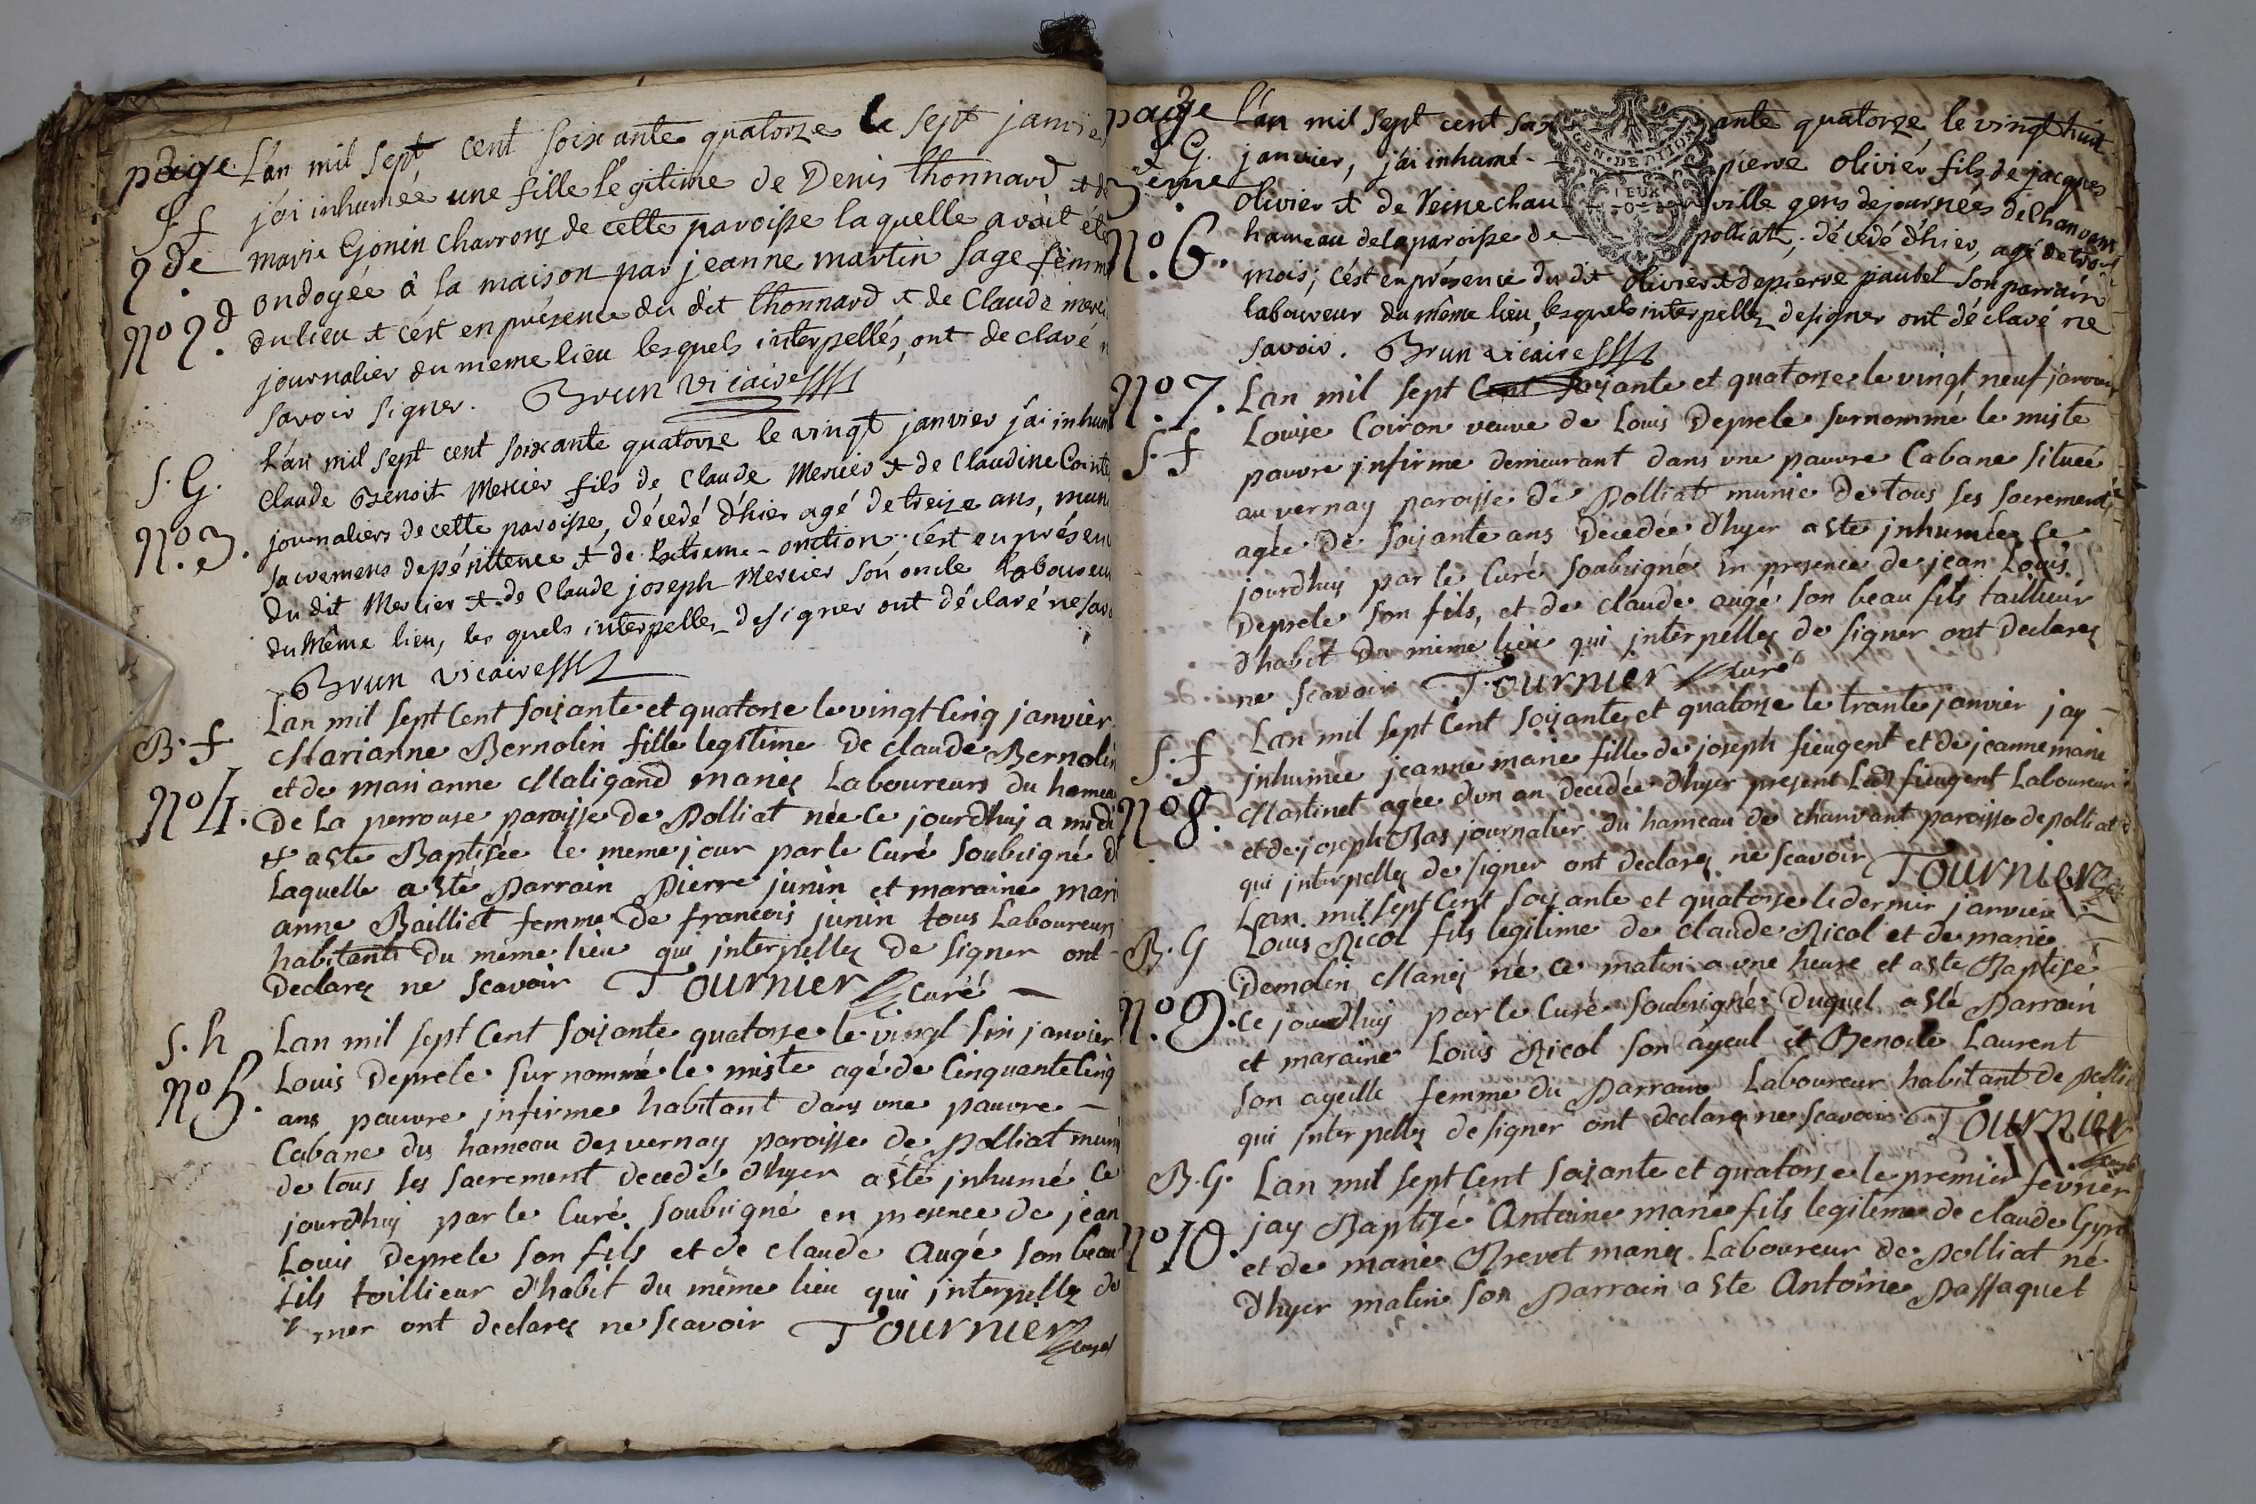 paige L'an mil sept cent soixante quatorze le sept janvier
S. f j'ai inhumée une fille legitime de Denis thonnard et de
2de marie Gonin charrons de cette paroisse laquelle avait été
No 2d ondoyée à la maison par jeanne martin sage femme
du lieu et c'est en présence du dit thonnard et de Claude
journalier du meme lieu lesquels interpellés, ont declaré
savoir signer. Brun vicaire
L'an mil sept cent soixante quatorze le vingt janvier j'ai inhumé
S. G. Claude Benoit Mercier fils de Claude Mercier et de Claudine
No 3. journaliers de cette paroisse, décédé d'hier agé de treize ans, muni
sacremens de pénitence et de Extreme-onction c'est en présence
du dit Mercier et de Claude joseph Mercier son oncle laboureur
du même lieu, les quels interpellez de signer ont déclaré ne savoir
Brun vicaire
Lan mil sept Cent soixante et quatorse le vingt Cinq janvier
B. f Marianne Bernolin fille legitime de claude Bernolin
No 4. et de marianne Maligand mariez Laboureurs du hameau
De la perrouse paroisse de Polliat née Ce jourdhuy a midi
et a esté Baptisée le meme jour par le Curé soubsigné de
Laquelle a esté Parrain Pierre junin et maraine mari
anne Bailliet femme de francois junin tous Laboureurs
habitants du même lieu qui interpellez de signer ont
Declarez ne scavoir Tournier Curé
S. h Lan mil sept Cent soixante quatorse le vingt six janvier
No 5. Louis Deprele surnommé le miste agé de Cinquante Cinq
ans pauvre infirme habitant dans une pauvre
Cabane du hameau des vernay paroisse de Polliat muni
de tous ses sacrement decedé dhyer a esté inhumé Ce
jourdhuy par le Curé soubsigné en presence de jean
Louis Deprele son fils et de claude Augé son beau
fils taillieur dhabit du même lieu qui interpellez de
signer ont declarez ne scavoir Tournier Curé
paige L'an mil sept cent soixante quatorze le vingt huit
S. G. janvier, j'ai inhumé pierre olivier fils de jacques
3eme olivier et de Reine chanville gens de journées de Chanvant
No 6. hameau de la paroisse de polliat, décédé d'hier, agé de trois
mois; c'est en présence du dit olivier et de pierre paubel son parrain
laboureur du même lieu, lesquels interpellez de signer ont déclaré ne
savoir. Brun vicaire
No 7. Lan mil sept Cent soixante et quatorse le vingt neuf janvier
S. f Louise Coiron veuve de Louis Deprele surnommé le miste
pauvre infirme demeurant dans une pauvre Cabane située
au vernay paroisse de Polliat munie de tous ses sacrements
agée de soixante ans Decedée dhyer a esté inhumée Ce
jourdhuy par le Curé soubsigné En presence de jean Louis
Deprele son fils, et de claude augé son beau fils taillieur
dhabit du même lieu qui interpellez de signer ont Declarez
ne scavoir Tournier Curé
S. f Lan mil sept Cent soixante et quatorse le trante janvier jay
No 8. inhumée jeanne marie fille de joseph fieugent et de jeanne marie
Martinet agée dun an decedée dhyer present Led. fieugent Laboureur
et de joseph Bas journalier du hameau de chanvant paroisse de polliat
qui interpellez de signer ont declarez ne scavoir Tournier
Lan mil sept Cent soixante et quatorse le dernier janvier
B. G Louis Nicol fils legitime de claude Nicol et de marie
No 9. Demolin Mariez né ce matin a une heure et a esté Baptisé
Ce jourdhuy par le Curé soubsigné Duquel a esté Parrain
et maraine Louis Nicol son ayeul et Benoite Laurent
son ayeulle femme du Parrain Laboureur habitant de
qui interpellez de signer ont declarez ne scavoir Tournier
Curé
B. G. Lan mil sept Cent soixante et quatorse le premier fevrier
No 10. jay Baptisé Antoine marie fils legitime de claude
et de marie Brevet mariez Laboureur de Polliat né
dhyer matin son Parrain a esté Antoine Passaquet